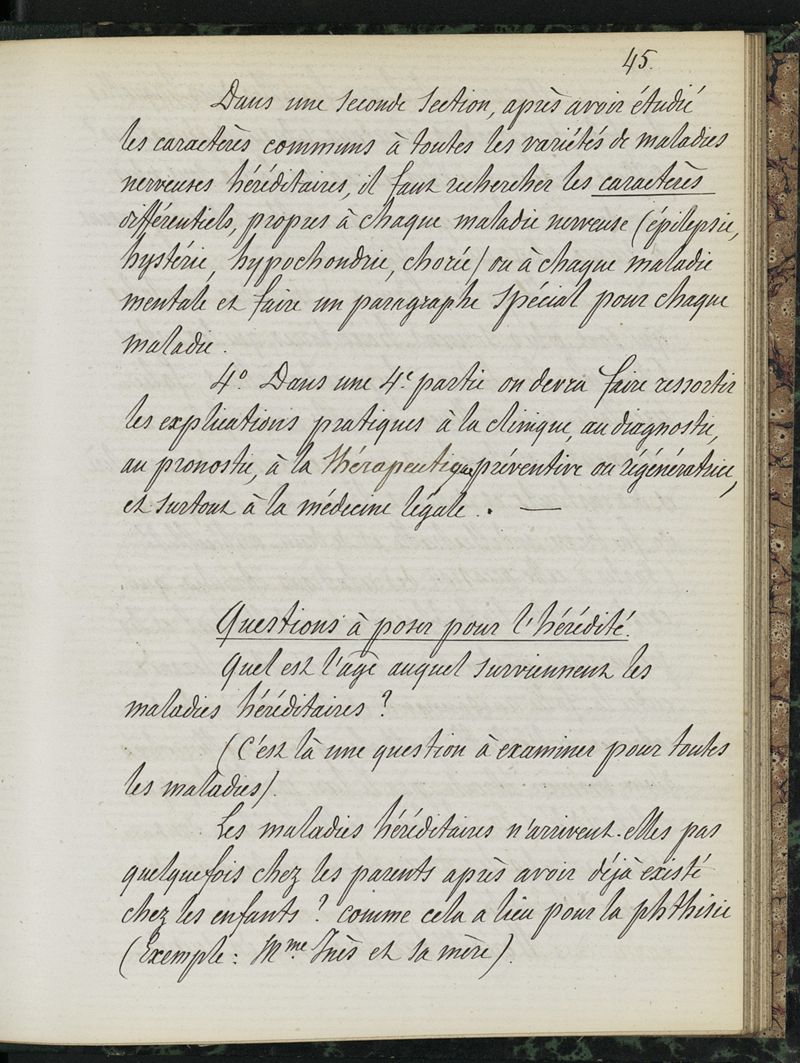 45.
Dans une seconde section, après avoir étudié
les caractères communs à toutes les variétés de maladies
nerveuses héréditaires, il faut rechercher les caractères
différentiels, propres à chaque maladie nerveuse (épilepsie,
hystérie, hypochondrie, chorée) ou à chaque maladie
mentale et faire un paragraphe spécial pour chaque
maladie.
4º. Dans une 4e partie on devra faire ressortir
les explications pratiques à la clinique, au diagnostic,
au pronostic, à la thérapeutique préventive ou régénératrice,
et surtout à la médecine légale. . —
Questions à poser pour l'hérédité.
Quel est l'âge auquel surviennent les
maladies héréditaires ?
(C'est là une question à examiner pour toutes
les maladies).
Les maladies héréditaires n'arrivent-elles pas
quelquefois chez les parents après avoir déjà existé
chez les enfants ? comme cela a lieu pour la phthisie
(Exemple : Mme Inès et sa mère).